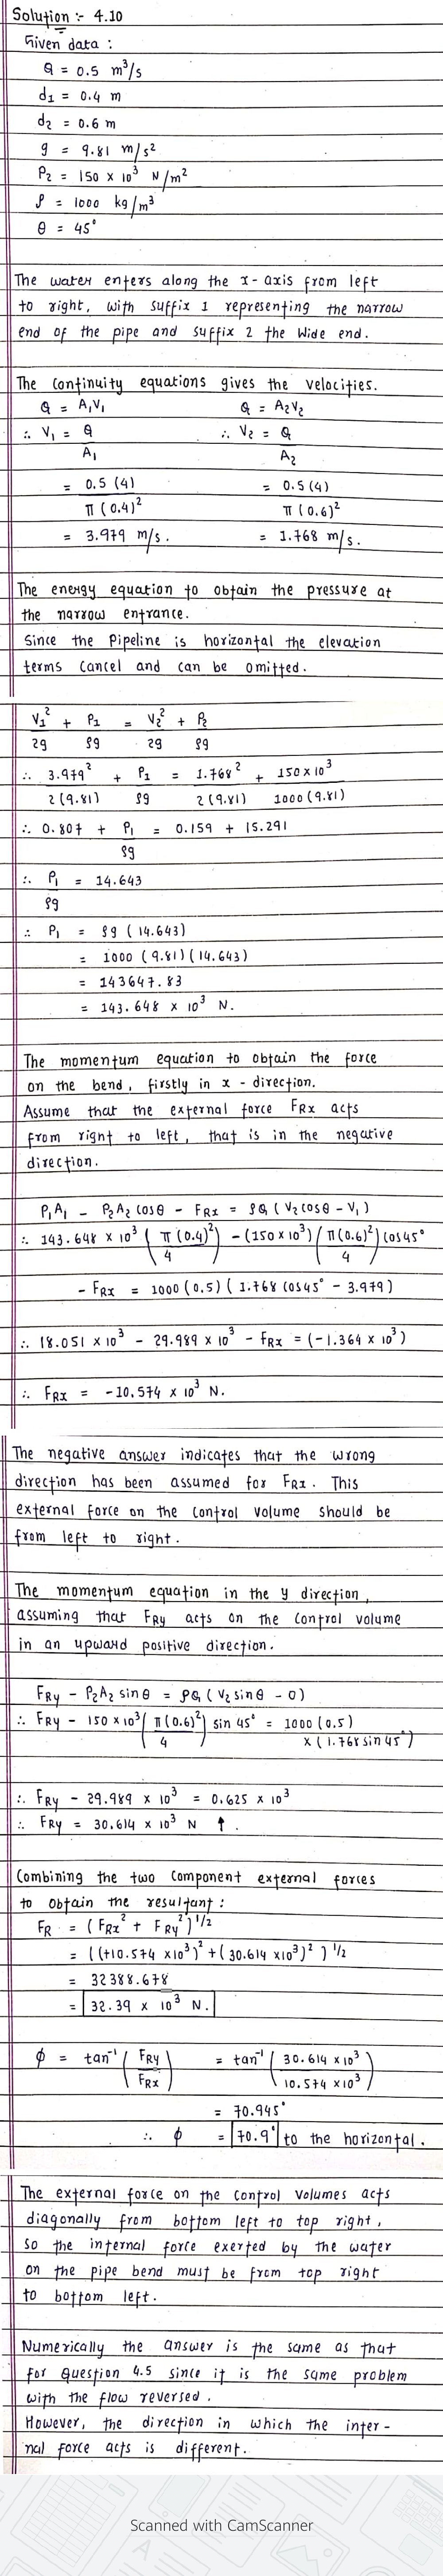 Solution :- 4.10
Given data :
Q = 0.5 m³/s
d1 = 0.4 m
d2 = 0.6 m
g = 9.81 m/s²
P2 = 150 × 10³ N/m²
ρ = 1000 kg/m³
θ = 45°
The water enters along the x-axis from left
to right, with suffix 1 representing the narrow
end of the pipe and suffix 2 the wide end.
The continuity equations gives the velocities.
Q = A1V1 Q = A2V2
∴ V1 = Q/A1 ∴ V2 = Q/A2
= 0.5 (4)/π(0.4)² = 0.5 (4)/π(0.6)²
= 3.979 m/s. = 1.768 m/s.
The energy equation to obtain the pressure at
the narrow entrance.
Since the pipeline is horizontal the elevation
terms cancel and can be omitted.
V1²/2g + P1/ρg = V2²/2g + P2/ρg
∴ 3.979²/2(9.81) + P1/ρg = 1.768²/2(9.81) + 150×10³/1000(9.81)
∴ 0.807 + P1/ρg = 0.159 + 15.291
∴ P1/ρg = 14.643
∴ P1 = ρg (14.643)
= 1000 (9.81)(14.643)
= 143647.83
= 143.648 × 10³ N.
The momentum equation to obtain the force
on the bend, firstly in x - direction.
Assume that the external force FRx acts
from right to left, that is in the negative
direction.
P1A1 - P2A2 cosθ - FRx = ρQ (V2cosθ - V1)
∴ 143.648 × 10³ (π(0.4)²/4) - (150×10³)(π(0.6)²/4) cos45°
- FRx = 1000 (0.5) ( 1.768 cos45° - 3.979)
∴ 18.051 × 10³ - 29.989 × 10³ - FRx = (-1.364 × 10³)
∴ FRx = -10.574 × 10³ N.
The negative answer indicates that the wrong
direction has been assumed for FRx. This
external force on the control volume should be
from left to right.
The momentum equation in the y direction,
assuming that FRy acts on the control volume
in an upward positive direction.
FRy - P2A2 sinθ = ρQ (V2 sinθ - 0)
∴ FRy - 150 × 10³ (π(0.6)²/4) sin 45° = 1000 (0.5)
× (1.768 sin 45°)
∴ FRy - 29.989 × 10³ = 0.625 × 10³
∴ FRy = 30.614 × 10³ N ↑ .
Combining the two component external forces
to obtain the resultant :
FR = (FRx² + FRy²)^1/2
= ((+10.574 ×10³)² + (30.614 ×10³)²)^1/2
= 32388.678
= 32.39 × 10³ N.
φ = tan⁻¹ (FRy/FRx) = tan⁻¹ (30.614 ×10³/10.574 ×10³)
= 70.945°
∴ φ = 70.9° to the horizontal.
The external force on the control volumes acts
diagonally from bottom left to top right,
so the internal force exerted by the water
on the pipe bend must be from top right
to bottom left.
Numerically the answer is the same as that
for Question 4.5 since it is the same problem
with the flow reversed.
However, the direction in which the inter-
nal force acts is different.
Scanned with CamScanner